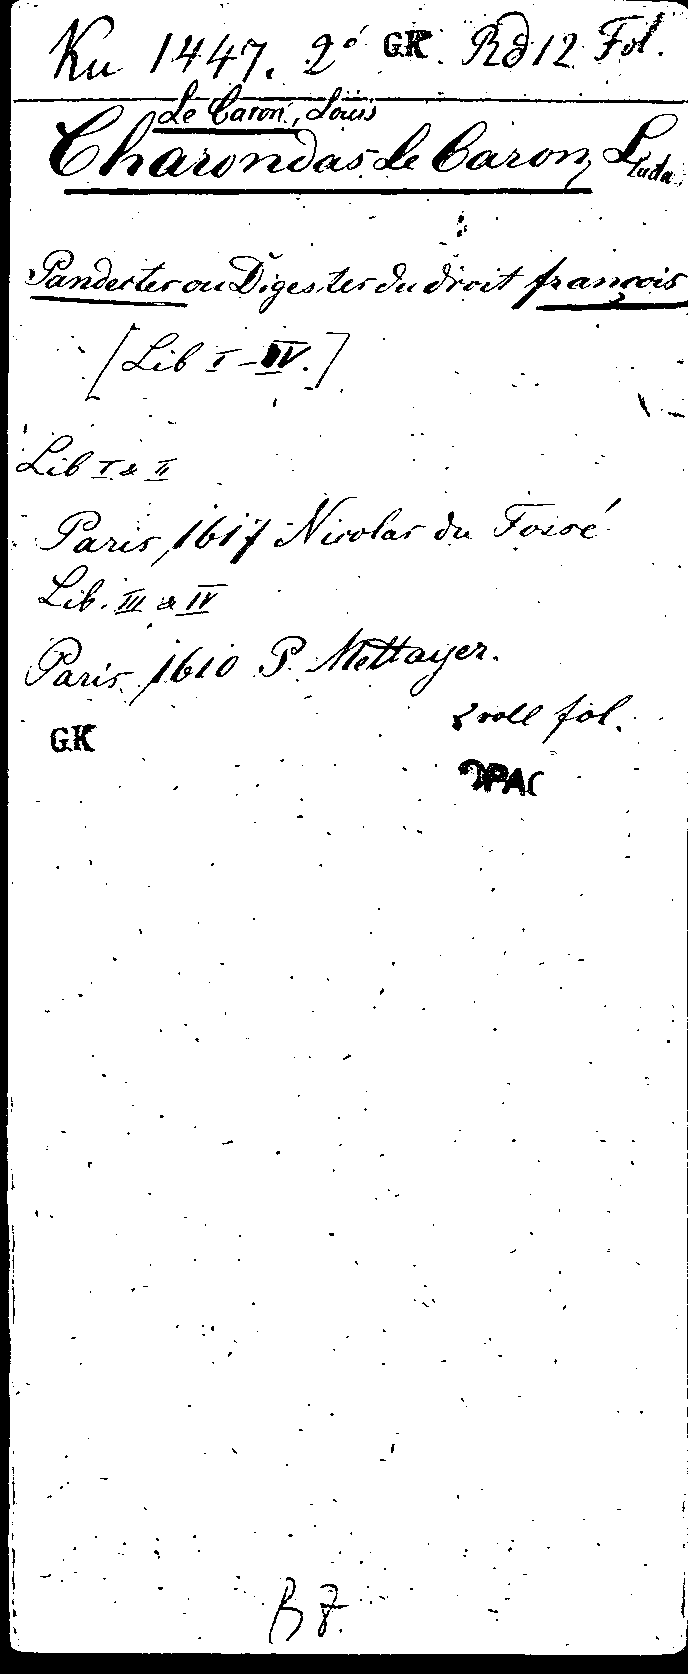 Ku 1447. 2° GK Rd 12 Fol.
Le Caron, Louis
Charondas Le Caron, L
Pandectes ou Digestes du droit françois
[Lib I-IV.]
Lib I & II
Paris, 1617 Nicolas du Fossé
Lib. III & IV
Paris, 1610 P. Mettayer.
2 voll fol.
GK
OPAC
B7.